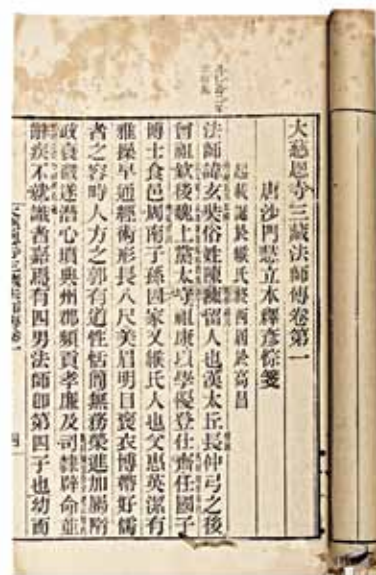 大慈恩寺三藏法師傳卷第一
唐沙門慧立本釋彥悰箋
起載誕於緱氏終西屆於高昌
法師諱玄奘俗姓陳陳留人也漢太丘長仲弓之後
曾祖欽後魏上黨太守祖康以學優登仕齊任國子
博士食邑周南子孫因家又緱氏人也父惠英潔有
雅操早通經術形長八尺美眉明目褒衣博帶好儒
者之容時人方之郭有道性恬簡無務榮進加屬隋
政衰微遂潛心墳典州郡頻貢孝廉及司隸辟命並
辭疾不就識者嘉焉有四男法師即第四子也幼而
大慈恩寺三藏法師傳卷一
四